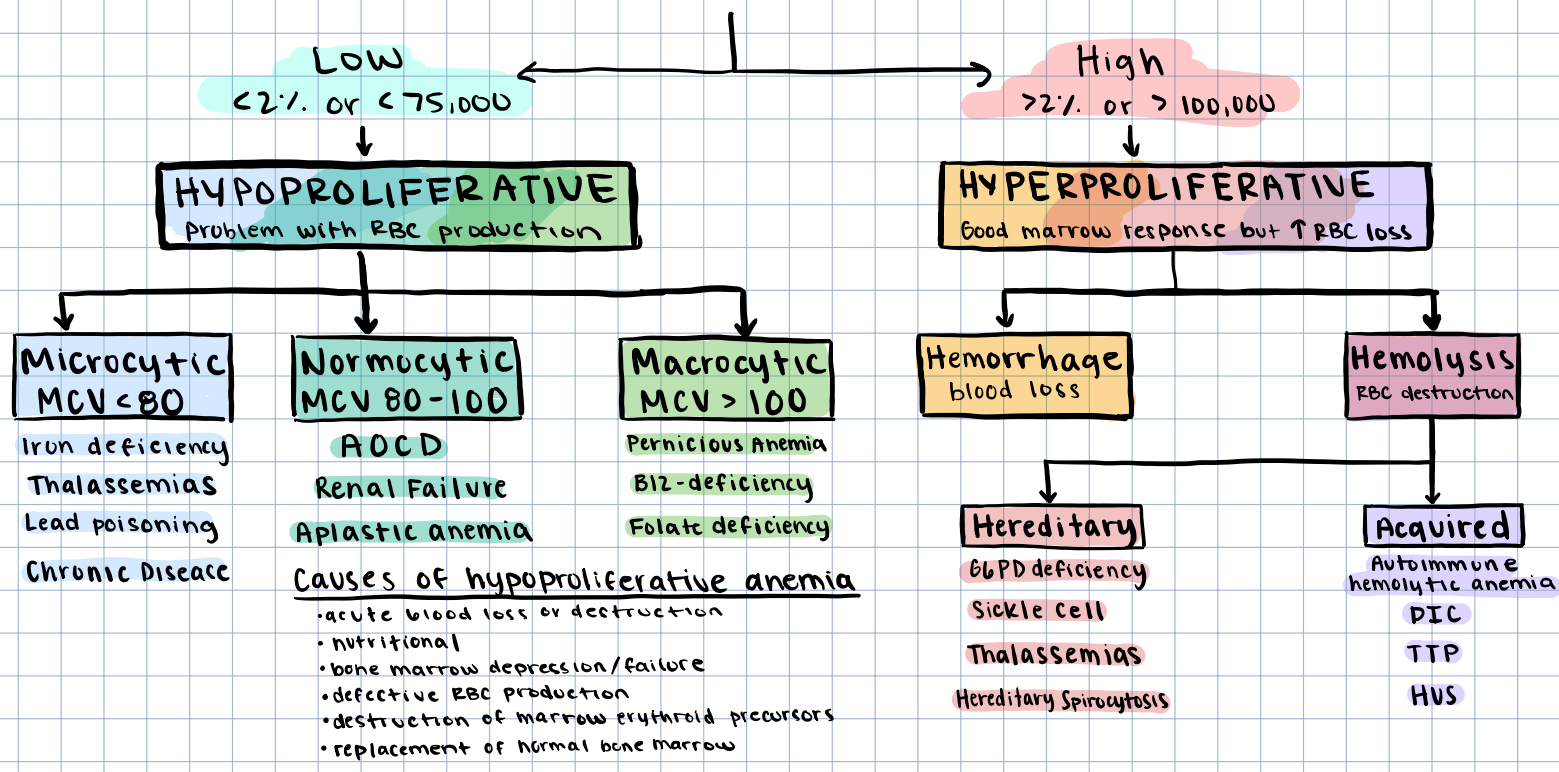 Low
<2% or <75,000
High
>2% or > 100,000
HYPOPROLIFERATIVE
Problem with RBC production
HYPERPROLIFERATIVE
Good marrow response but ↑ RBC loss
Microcytic
MCV < 80
Iron deficiency
Thalassemias
Lead poisoning
Chronic Disease
Normocytic
MCV 80-100
AOCD
Renal Failure
Aplastic anemia
Macrocytic
MCV > 100
Pernicious Anemia
B12-deficiency
Folate deficiency
Causes of hypoproliferative anemia
•acute blood loss or destruction
•nutritional
•bone marrow depression/failure
•defective RBC production
•destruction of marrow erythroid precursors
•replacement of normal bone marrow
Hemorrhage
blood loss
Hemolysis
RBC destruction
Hereditary
G6PD deficiency
Sickle Cell
Thalassemias
Hereditary Spirocytosis
Acquired
Autoimmune
hemolytic anemia
DIC
TTP
HUS